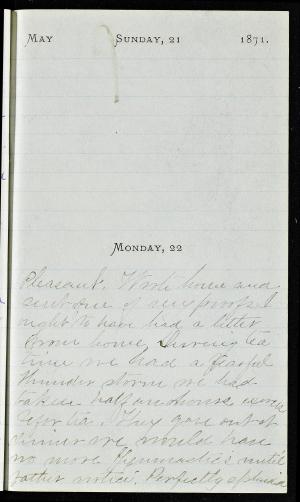 May Sunday, 21 1871.
Monday, 22
Pleasant. Wrote home and
sent one of my proofs I
ought to have had a letter
from home, during tea
time we had a fearful
thunder storm we had
taken half an hours
before tea. They gave out at
dinner we would have
no more Gymnastics until
further notice. Perfectly splendid